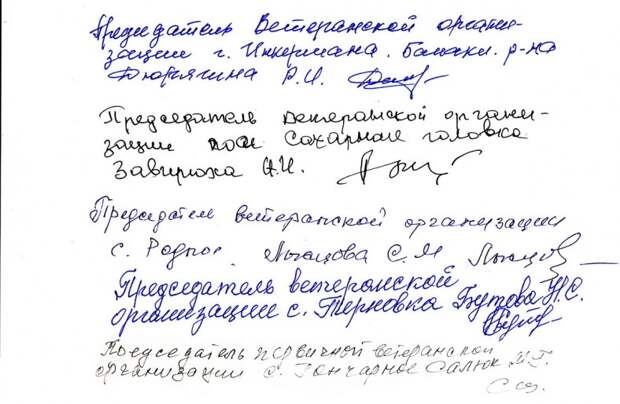 Председатель Ветеранской органи-
зации г. Инкермана. Балакл. р-на
Дюрягина Р.И.
Председатель ветеранской органи-
зации пос Сахарная головка
Завирюха А.И.
Председател ветеранской организации
с. Родное С.М
Председатель ветеранской
организации с. Терновка Бутова Н.С.
Председатель первичной ветеранской
организации с. Гончарное Салюк М.Г.